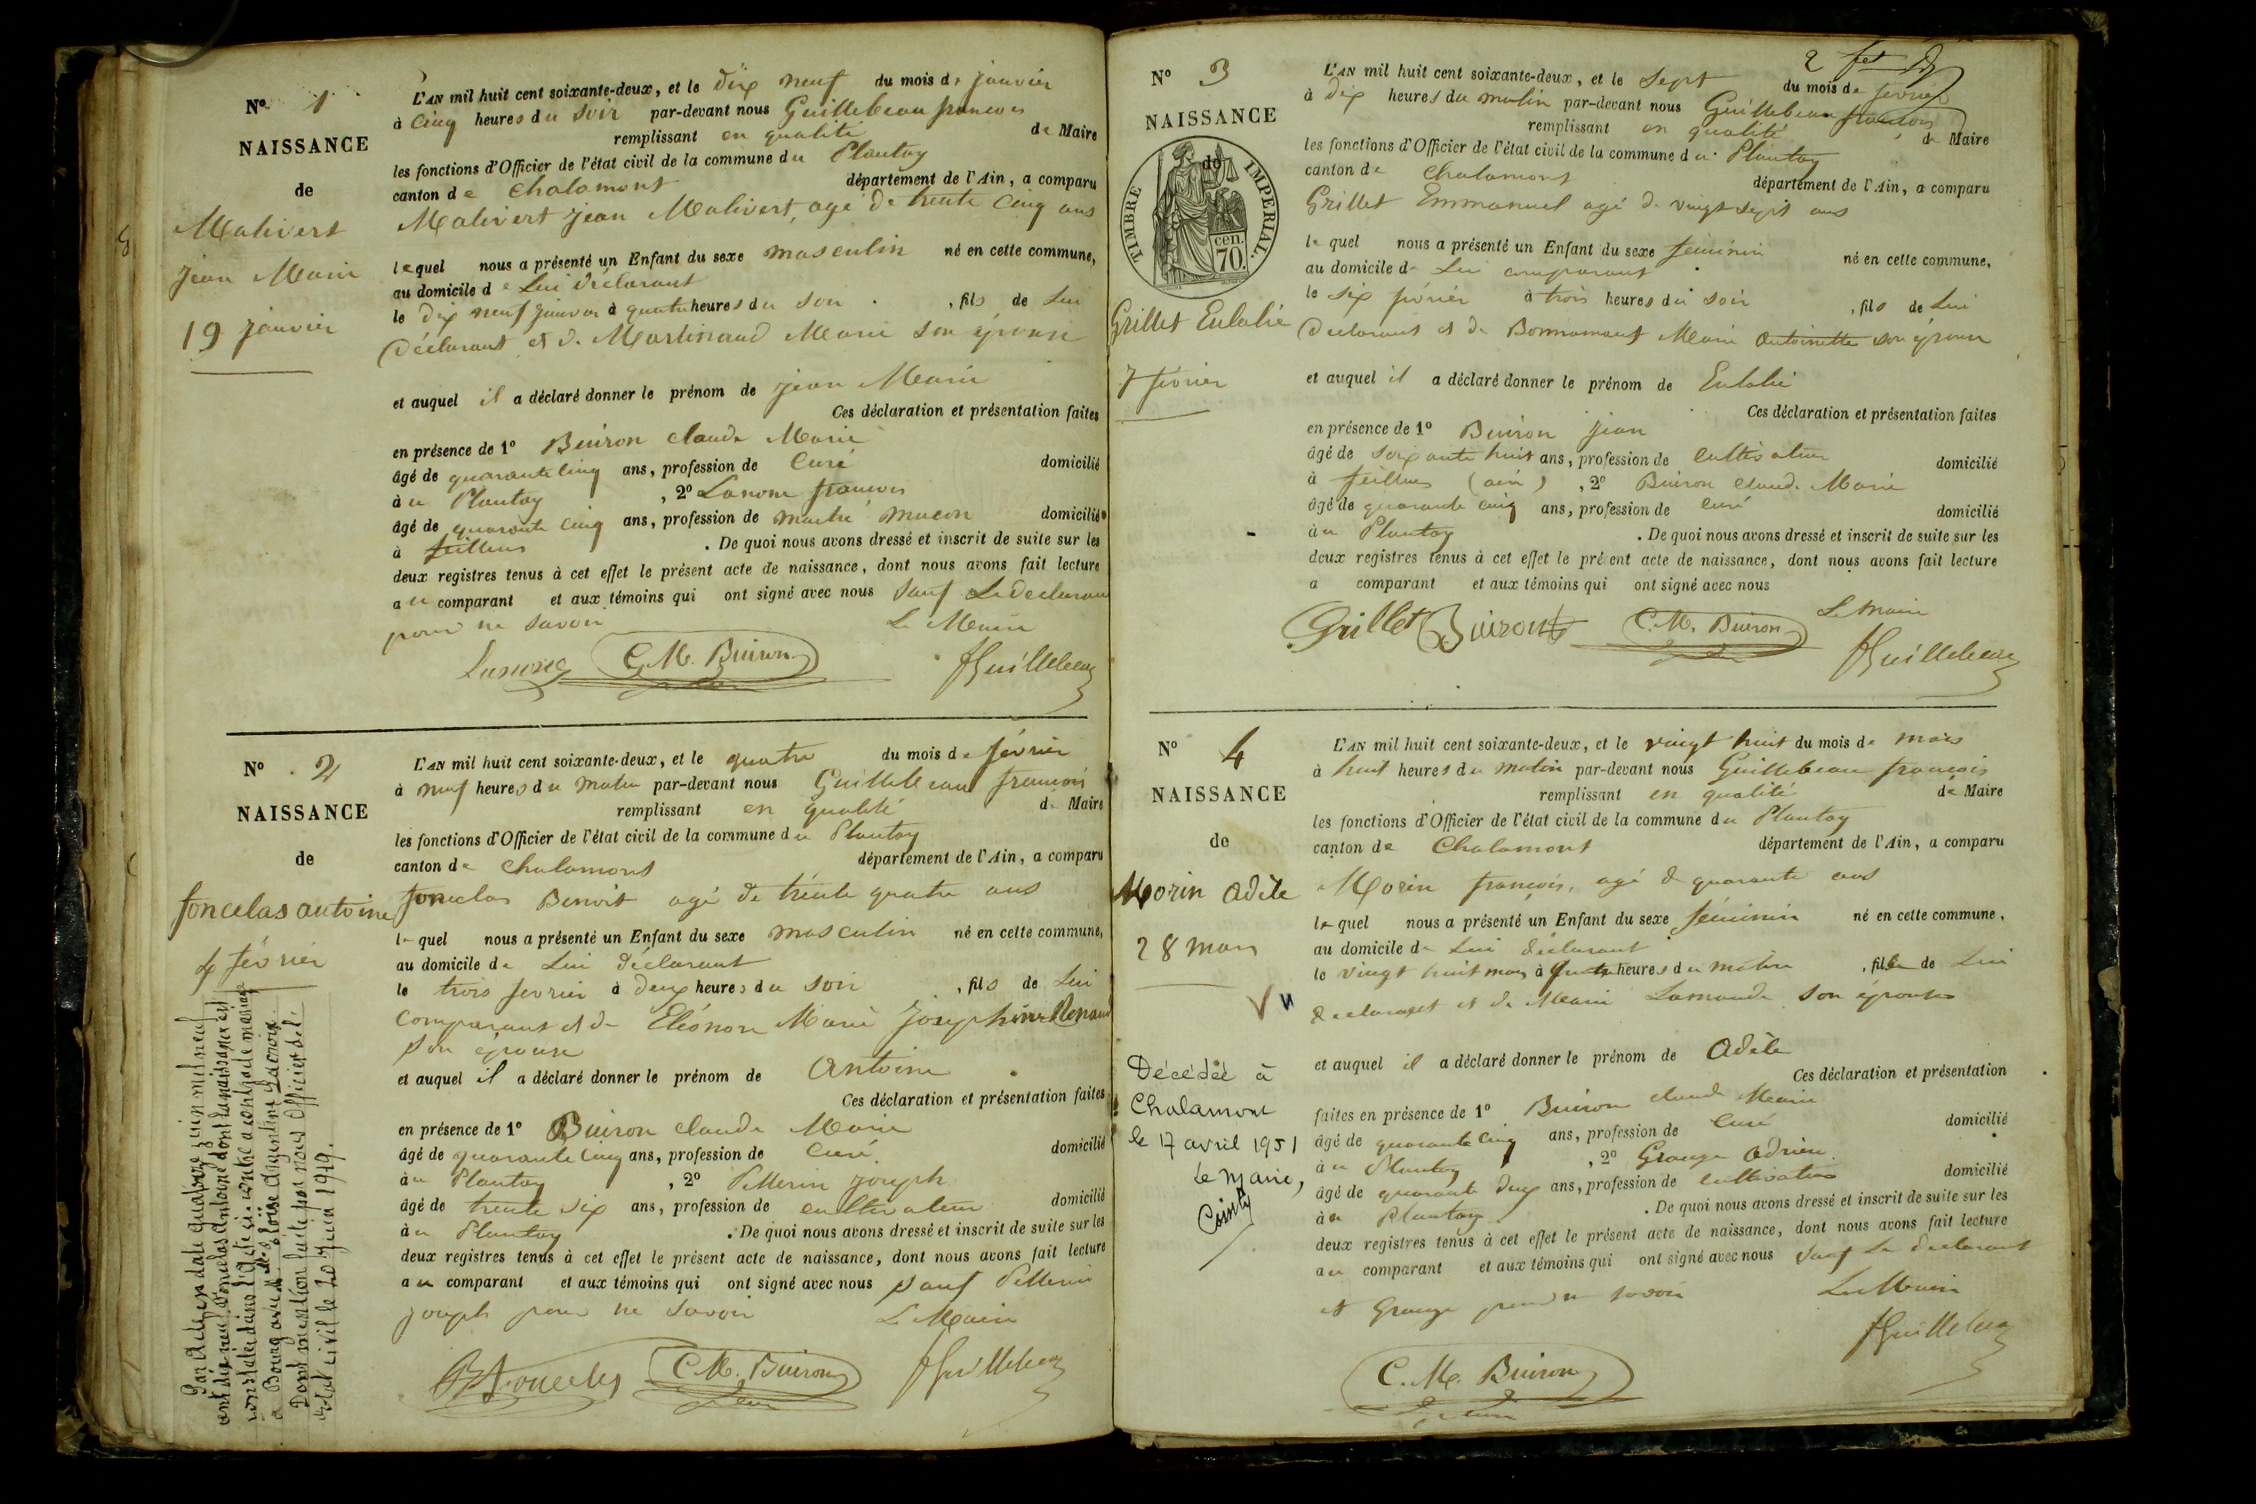 N° 1
NAISSANCE
de
Malivert
Jean Marie
19 janvier
L'AN mil huit cent soixante-deux, et le dix neuf du mois de janvier
à cinq heures du soir par-devant nous Guillebeau françois
remplissant en qualité de Maire
les fonctions d'Officier de l'état civil de la commune du Plantay
canton de Chalamont département de l'Ain, a comparu
Malivert Jean Malivert, agé de trente cinq ans
lequel nous a présenté un Enfant du sexe masculin né en cette commune,
au domicile de Lui déclarant
le dix neuf janvier à quatre heures du soir, fils de Lui
Déclarant et de Martinaud Marie son épouse
et auquel il a déclaré donner le prénom de jean Marie
Ces déclaration et présentation faites
en présence de 1° Buiron claude Marie
âgé de quarante cinq ans, profession de Curé domicilié
à u Plantay, 2° Lanone françois
âgé de quarante cinq ans, profession de maitre macon domicilié
à feillens. De quoi nous avons dressé et inscrit de suite sur les
deux registres tenus à cet effet le présent acte de naissance, dont nous avons fait lecture
au comparant et aux témoins qui ont signé avec nous sauf Le declarant
pour ne savoir Le Maire
Lanone C. M. Buiron fGuillebeau
N° 2
NAISSANCE
de
foncelas antoine
4 février
Par Acte en date quatorze juin mil neuf
cent dix neuf, Foncelas Antoine dont la naissance est
constatée dans l'Acte ci-contre a contracté mariage
à Bourg avec Melle Eloïse Argentine Lacroix.
Dont mention faite par nous Officier de l'
état civil le 20 Juin 1919.
L'AN mil huit cent soixante-deux, et le quatre du mois de février
à neuf heures du matin par-devant nous Guillebeau françois
remplissant en qualité de Maire
les fonctions d'Officier de l'état civil de la commune du Plantay
canton de Chalamont département de l'Ain, a comparu
foncelas Benoit agé de trente quatre ans
lequel nous a présenté un Enfant du sexe masculin né en cette commune,
au domicile de Lui déclarant
le trois fevrier à deux heures du soir, fils de Lui
comparant et de Eléonore Marie Joséphine Renaud
son épouse
et auquel il a déclaré donner le prénom de Antoine
Ces déclaration et présentation faites
en présence de 1° Buiron claude Marie
âgé de quarante cinq ans, profession de Curé domicilié
à u Plantay, 2° Pellerin joseph
âgé de trente six ans, profession de cultivateur domicilié
à u Plantay. De quoi nous avons dressé et inscrit de suite sur les
deux registres tenus à cet effet le présent acte de naissance, dont nous avons fait lecture
au comparant et aux témoins qui ont signé avec nous sauf Pellerin
joseph pour ne savoir Le Maire
C. M. Buiron fGuillebeau
2 fet
N° 3
NAISSANCE
de
TIMBRE IMPERIAL.
70 cen.
Grillet Eulalie
7 février
L'AN mil huit cent soixante-deux, et le sept du mois de fevrier
à dix heures du matin par-devant nous Guillebeau françois
remplissant en qualité de Maire
les fonctions d'Officier de l'état civil de la commune du Plantay
canton de Chalamont département de l'Ain, a comparu
Grillet Emmanuel agé de vingt sept ans
lequel nous a présenté un Enfant du sexe féminin né en cette commune,
au domicile de Lui comparant
le six février à trois heures du soir, fils de Lui
Déclarant et de Bonnamant Marie antoinette son épouse
et auquel il a déclaré donner le prénom de Eulalie
Ces déclaration et présentation faites
en présence de 1° Buiron jean
âgé de soixante huit ans, profession de cultivateur domicilié
à feillens (ain), 2° Buiron claude Marie
âgé de quarante cinq ans, profession de curé domicilié
à u Plantay. De quoi nous avons dressé et inscrit de suite sur les
deux registres tenus à cet effet le présent acte de naissance, dont nous avons fait lecture
a comparant et aux témoins qui ont signé avec nous
Le Maire
Grillet Buiron C. M. Buiron fGuillebeau
N° 4
NAISSANCE
de
Morin adèle
28 mars
Vu
Décédée à
Chalamont
le 17 avril 1951
Le Maire,
L'AN mil huit cent soixante-deux, et le vingt huit du mois de mars
à huit heures du matin par-devant nous Guillebeau françois
remplissant en qualité de Maire
les fonctions d'Officier de l'état civil de la commune du Plantay
canton de Chalamont département de l'Ain, a comparu
Morin françois, agé de quarante ans
lequel nous a présenté un Enfant du sexe féminin né en cette commune,
au domicile de Lui déclarant
le vingt huit mars à quatre heures du matin, fille de Lui
declarant et de Marie Lamande son épouse
et auquel il a déclaré donner le prénom de Adèle
Ces déclaration et présentation
faites en présence de 1° Buiron claude Marie
âgé de quarante cinq ans, profession de Curé domicilié
à u Plantay, 2° Grange adrien
âgé de quarante deux ans, profession de cultivateur domicilié
à u Plantay. De quoi nous avons dressé et inscrit de suite sur les
deux registres tenus à cet effet le présent acte de naissance, dont nous avons fait lecture
au comparant et aux témoins qui ont signé avec nous sauf Le declarant
et Grange pour ne savoir Le Maire
C. M. Buiron fGuillebeau